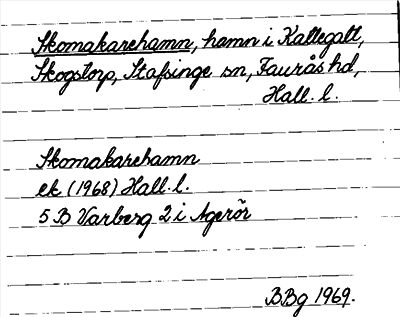 Skomakarehamn, hamn i Kattegatt,
Skogstorp, Stafsinge sn, Faurås hd,
Hall. l.
Skomakarehamn
ek (1968) Hall. l.
5 B Varberg 2 i Agerör
BBg 1969.